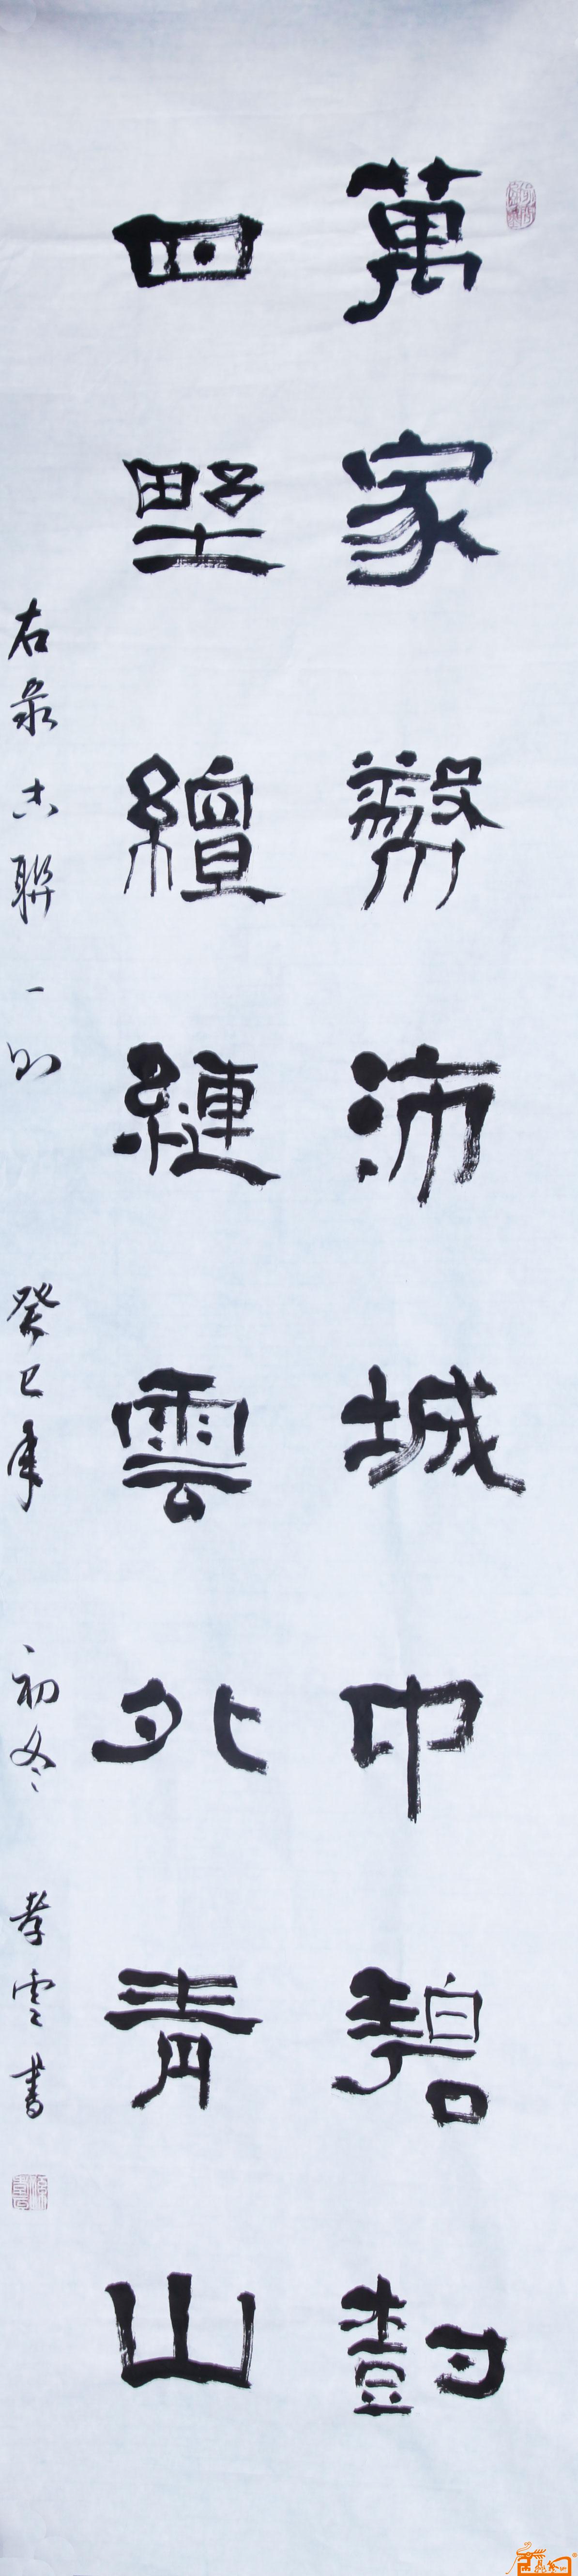 萬家繁沛城中碧樹
四野繵縺雲外青山
右录古聯一则 癸巳年 初冬 孝雲書